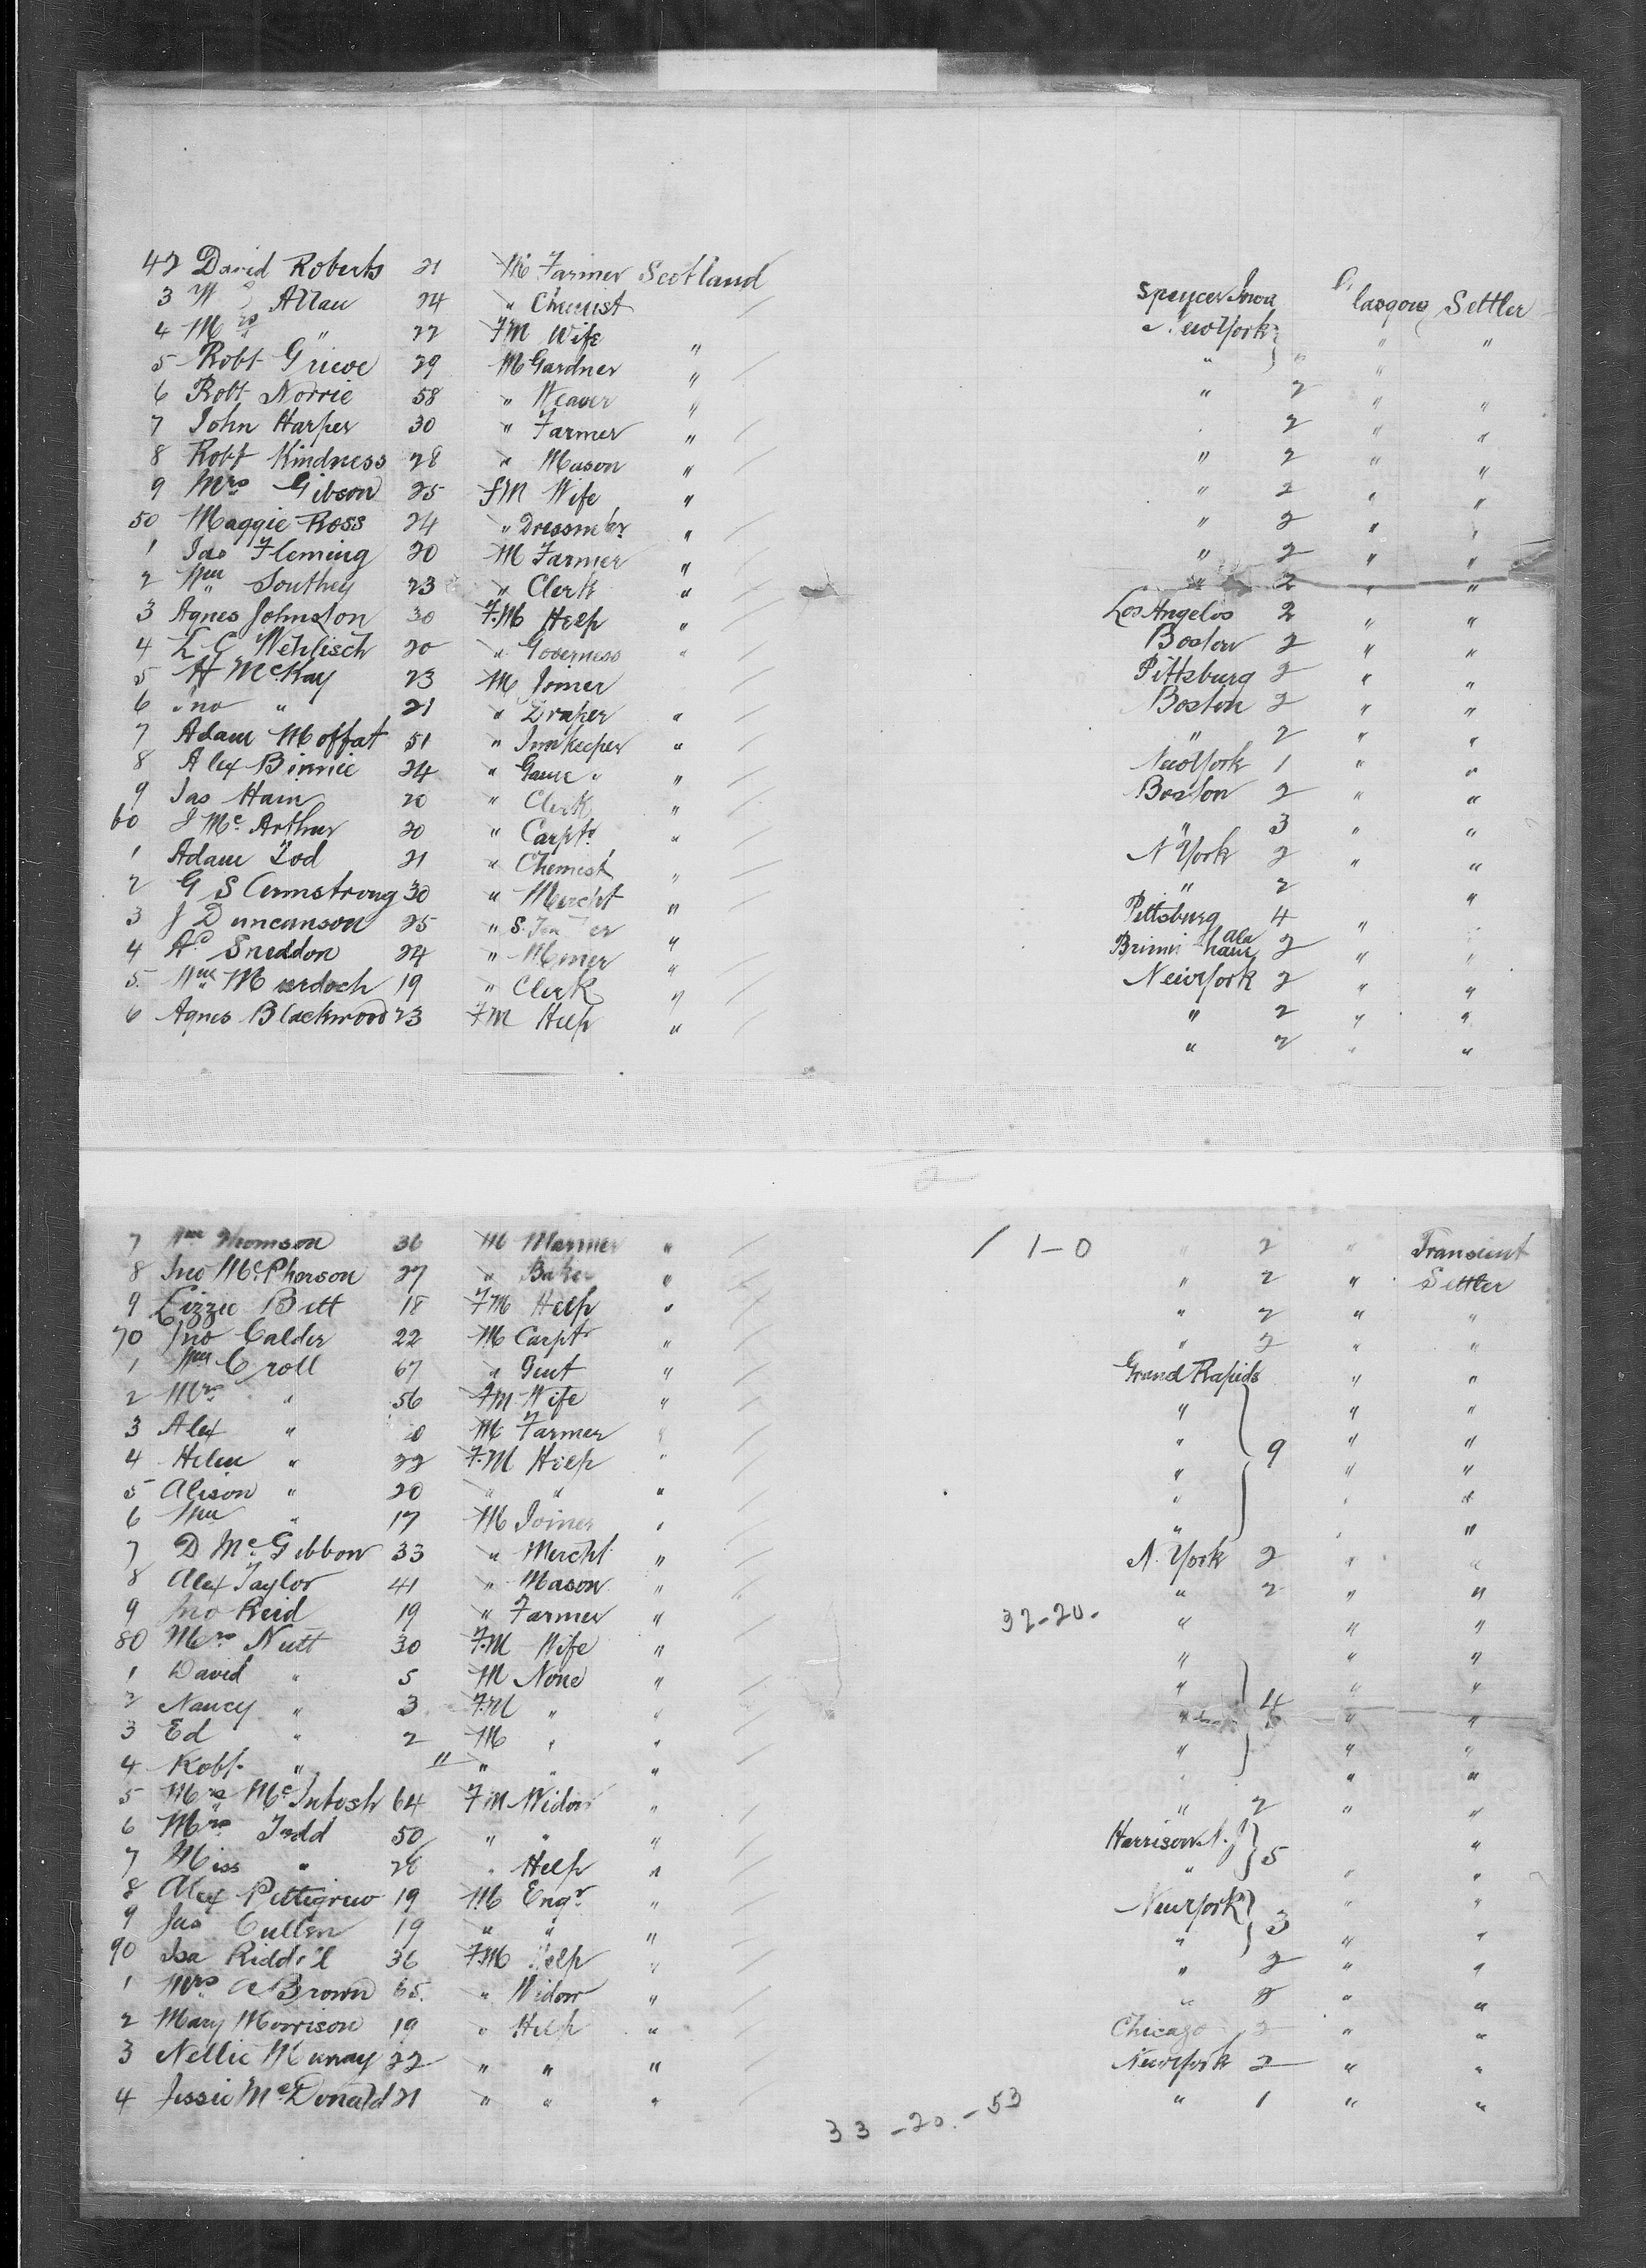 42 David Roberts 21 M Farmer Scotland Spencer Iowa Glasgow Settler
3 W Allan 24 " Chemist New York " "
4 Mrs " 22 FM Wife " " "
5 Robt Grieve 29 M Gardner " " 2 " "
6 Robt Norrie 58 " Weaver " 2 " "
7 John Harper 30 " Farmer " " 2 " "
8 Robt Kindness 28 " Mason " " 2 " "
9 Mrs Gibson 25 FM Wife " " 2 " "
50 Maggie Ross 24 " Dressmkr " " 2 " "
1 Jas Fleming 20 M Farmer " " 2 " "
2 Wm Southey 23 " Clerk " Los Angelos 2 " "
3 Agnes Johnston 30 F.M Help " Boston 2 " "
4 L C Wehlisch 20 " Governess " Pittsburg 2 " "
5 H McKay 23 M Joiner Boston 2 " "
6 Jno " 21 " Draper " " 2 " "
7 Adam Moffat 51 " Innkeeper " New York 1 " "
8 Alex Binnie 24 " Game " " Boston 2 " "
9 Jas Ham 20 " Clerk " " 3 " "
60 J McArthur 20 " Carptr " N York 2 " "
1 Adam Tod 21 " Chemist " " 2 "
2 G S Armstrong 30 " Mercht " Pittsburg 4 "
3 J Duncanson 25 " S. er " Brimi ham Ala 2 " "
4 Ad Sneddon 24 " Miner " New York 2 " "
5 Wm Murdoch 19 " Clerk " " 2 " "
6 Agnes Blackwood 23 FM Help " " 2 " "
2
7 Wm Thomson 36 M Mariner " / 1-0 " 2 " Transient
8 Jno McPherson 27 " Baker " " 2 " Settler
9 Lizzie Bett 18 FM Help " " 2 " "
70 Jno Calder 22 M Carptr " " 2 " "
1 Wm Croll 67 " Gent " Grand Rapids " "
2 Mrs " 56 FM Wife " " " "
3 Alex " M Farmer " " " "
4 Helen " 22 F.M Help " " 9 " "
5 Alison " 20 " " " " " "
6 Wm " 17 M Joiner " " " "
7 D McGibbon 33 " Mercht " N. York 2 " "
8 Alex Taylor 41 " Mason " " 2 " "
9 Jno Reid 19 " Farmer " 32-20- " " "
80 Mrs Nutt 30 F.M Wife " " " "
1 David " 5 M None " " " "
2 Nancy " 3 F.M " " " 4 " "
3 Ed " 2 M " " " " "
4 Robt " 11 " " " " "
5 Mrs McIntosh 64 FM Widow " " 2 " "
6 Mrs Todd 50 " " " Harrison N.J "
7 Miss " " Help " " 5 " "
8 Alex Pettigrew 19 M Engr " New York " "
9 Jas Cullen 19 " " " " 3 " "
90 Isa Riddell 36 F.M Help " " 2 " "
1 Mrs A Brown 65 " Widow " " " "
2 Mary Morrison 19 " Help " Chicago 2 " "
3 Nellie Murray 22 " " " New York 2 " "
4 Jessie McDonald 21 " " " " 1 " "
33-20-53